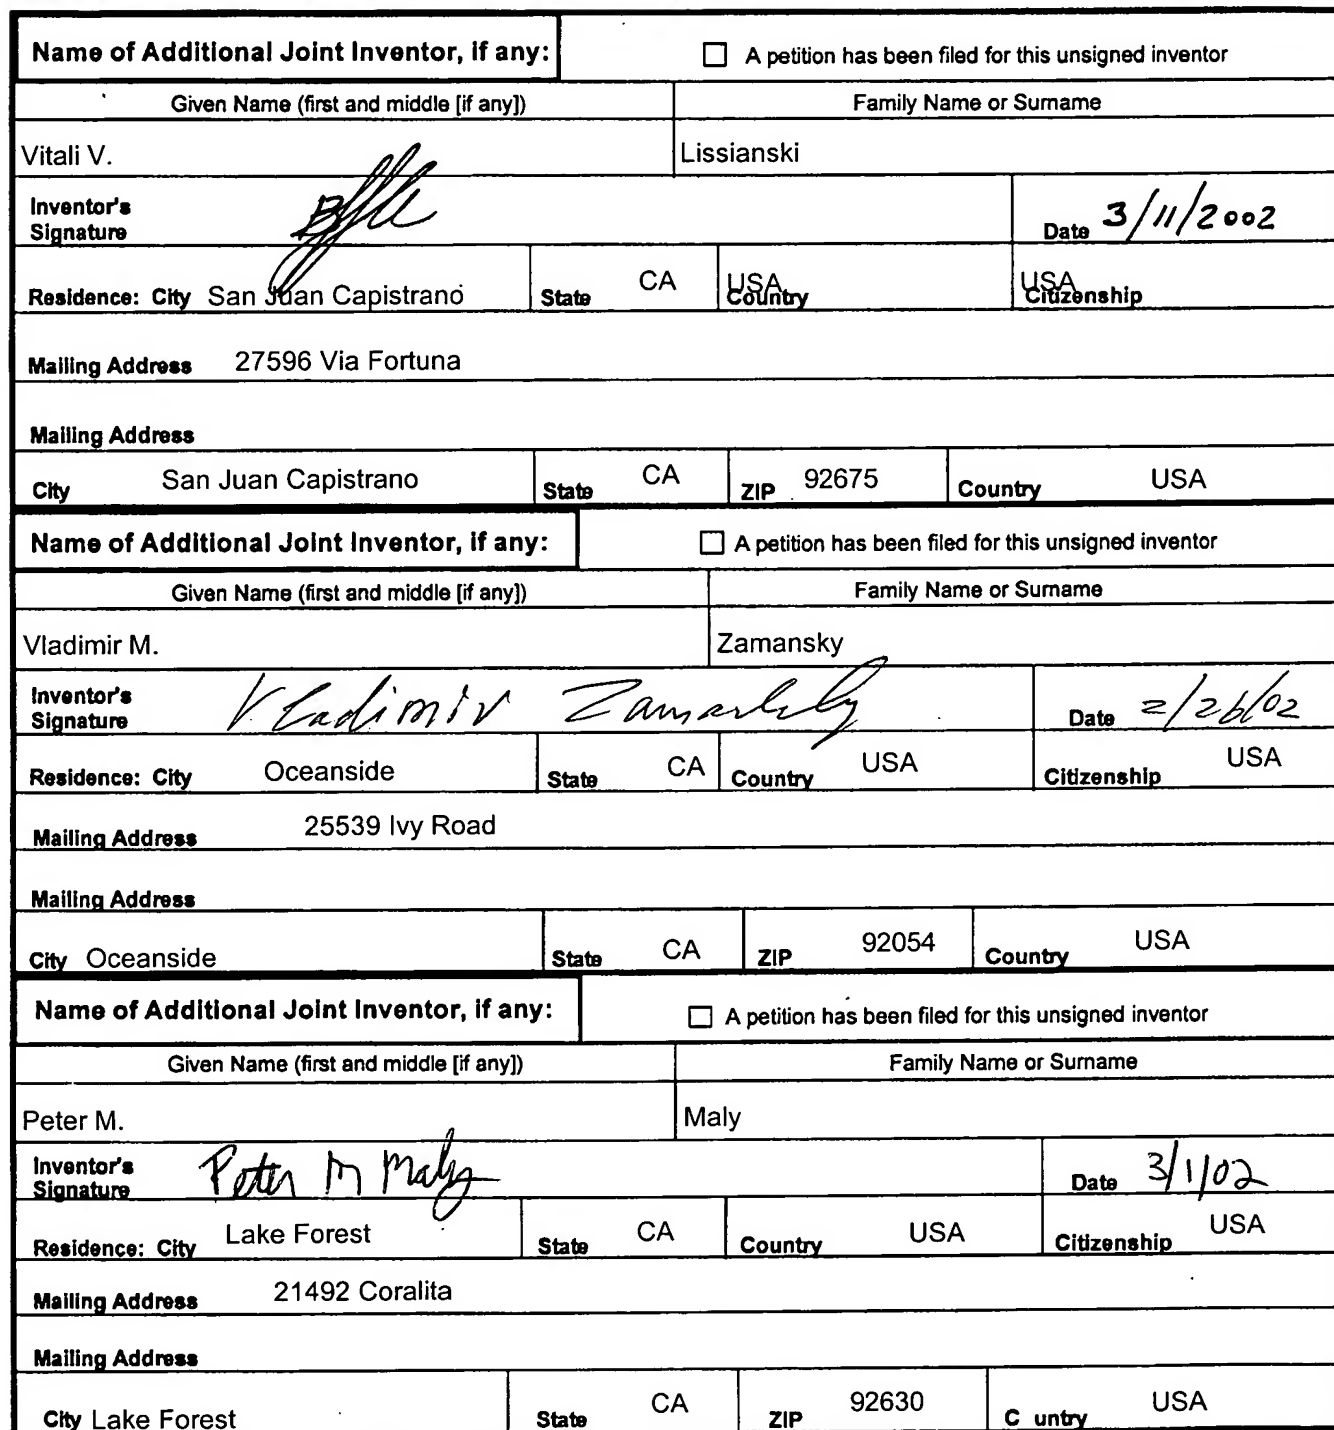 Name of Additional Joint Inventor, if any: ☐ A petition has been filed for this unsigned inventor
Given Name (first and middle [if any]) Family Name or Surname
Vitali V. Lissianski
Inventor's
Signature Date 3/11/2002
Residence: City San Juan Capistrano State CA Country USA Citizenship USA
Mailing Address 27596 Via Fortuna
Mailing Address
City San Juan Capistrano State CA ZIP 92675 Country USA
Name of Additional Joint Inventor, if any: ☐ A petition has been filed for this unsigned inventor
Given Name (first and middle [if any]) Family Name or Surname
Vladimir M. Zamansky
Inventor's
Signature Vladimir Zamansky Date 2/26/02
Residence: City Oceanside State CA Country USA Citizenship USA
Mailing Address 25539 Ivy Road
Mailing Address
City Oceanside State CA ZIP 92054 Country USA
Name of Additional Joint Inventor, if any: ☐ A petition has been filed for this unsigned inventor
Given Name (first and middle [if any]) Family Name or Surname
Peter M. Maly
Inventor's
Signature Peter M Maly Date 3/1/02
Residence: City Lake Forest State CA Country USA Citizenship USA
Mailing Address 21492 Coralita
Mailing Address
City Lake Forest State CA ZIP 92630 C untry USA